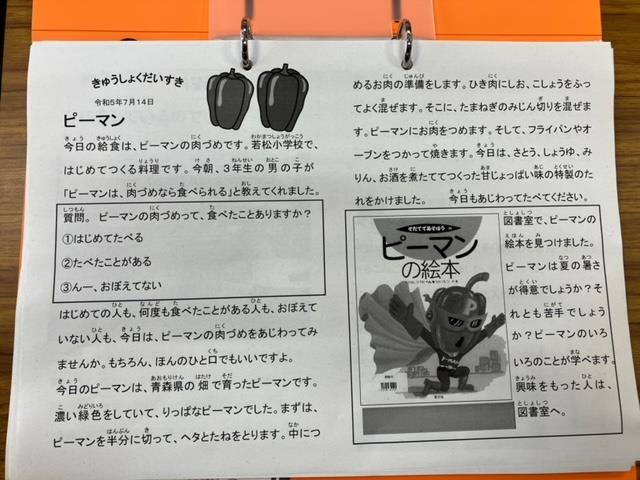 きゅうしょくだいすき
令和5年7月14日
ピーマン
今日の給食は、ピーマンの肉づめです。若松小学校で、
はじめてつくる料理です。今朝、3年生の男の子が
「ピーマンは、肉づめなら食べられる」と教えてくれました。
質問。ピーマンの肉づめって、食べたことありますか？
①はじめてたべる
②たべたことがある
③んー、おぼえてない
はじめての人も、何度も食べたことがある人も、おぼえて
いない人も、今日は、ピーマンの肉づめをあじわってみ
ませんか。もちろん、ほんのひと口でもいいですよ。
今日のピーマンは、青森県の畑で育ったピーマンです。
濃い緑色をしていて、りっぱなピーマンでした。まずは、
ピーマンを半分に切って、ヘタとたねをとります。中につ
めるお肉の準備をします。ひき肉にしお、こしょうをふっ
てよく混ぜます。そこに、たまねぎのみじん切りを混ぜま
す。ピーマンにお肉をつめます。そして、フライパンやオ
ーブンをつかって焼きます。今日は、さとう、しょうゆ、み
りん、お酒を煮たててつくった甘じょっぱい味の特製のた
れをかけました。 今日もあじわってたべてください。
そだててあそぼう
ピーマン
の絵本
図書室で、ピーマンの
絵本を見つけました。
ピーマンは夏の暑さ
が得意でしょうか？そ
れとも苦手でしょう
か？ピーマンのいろ
いろのことが学べます。
興味をもった人は、
図書室へ。